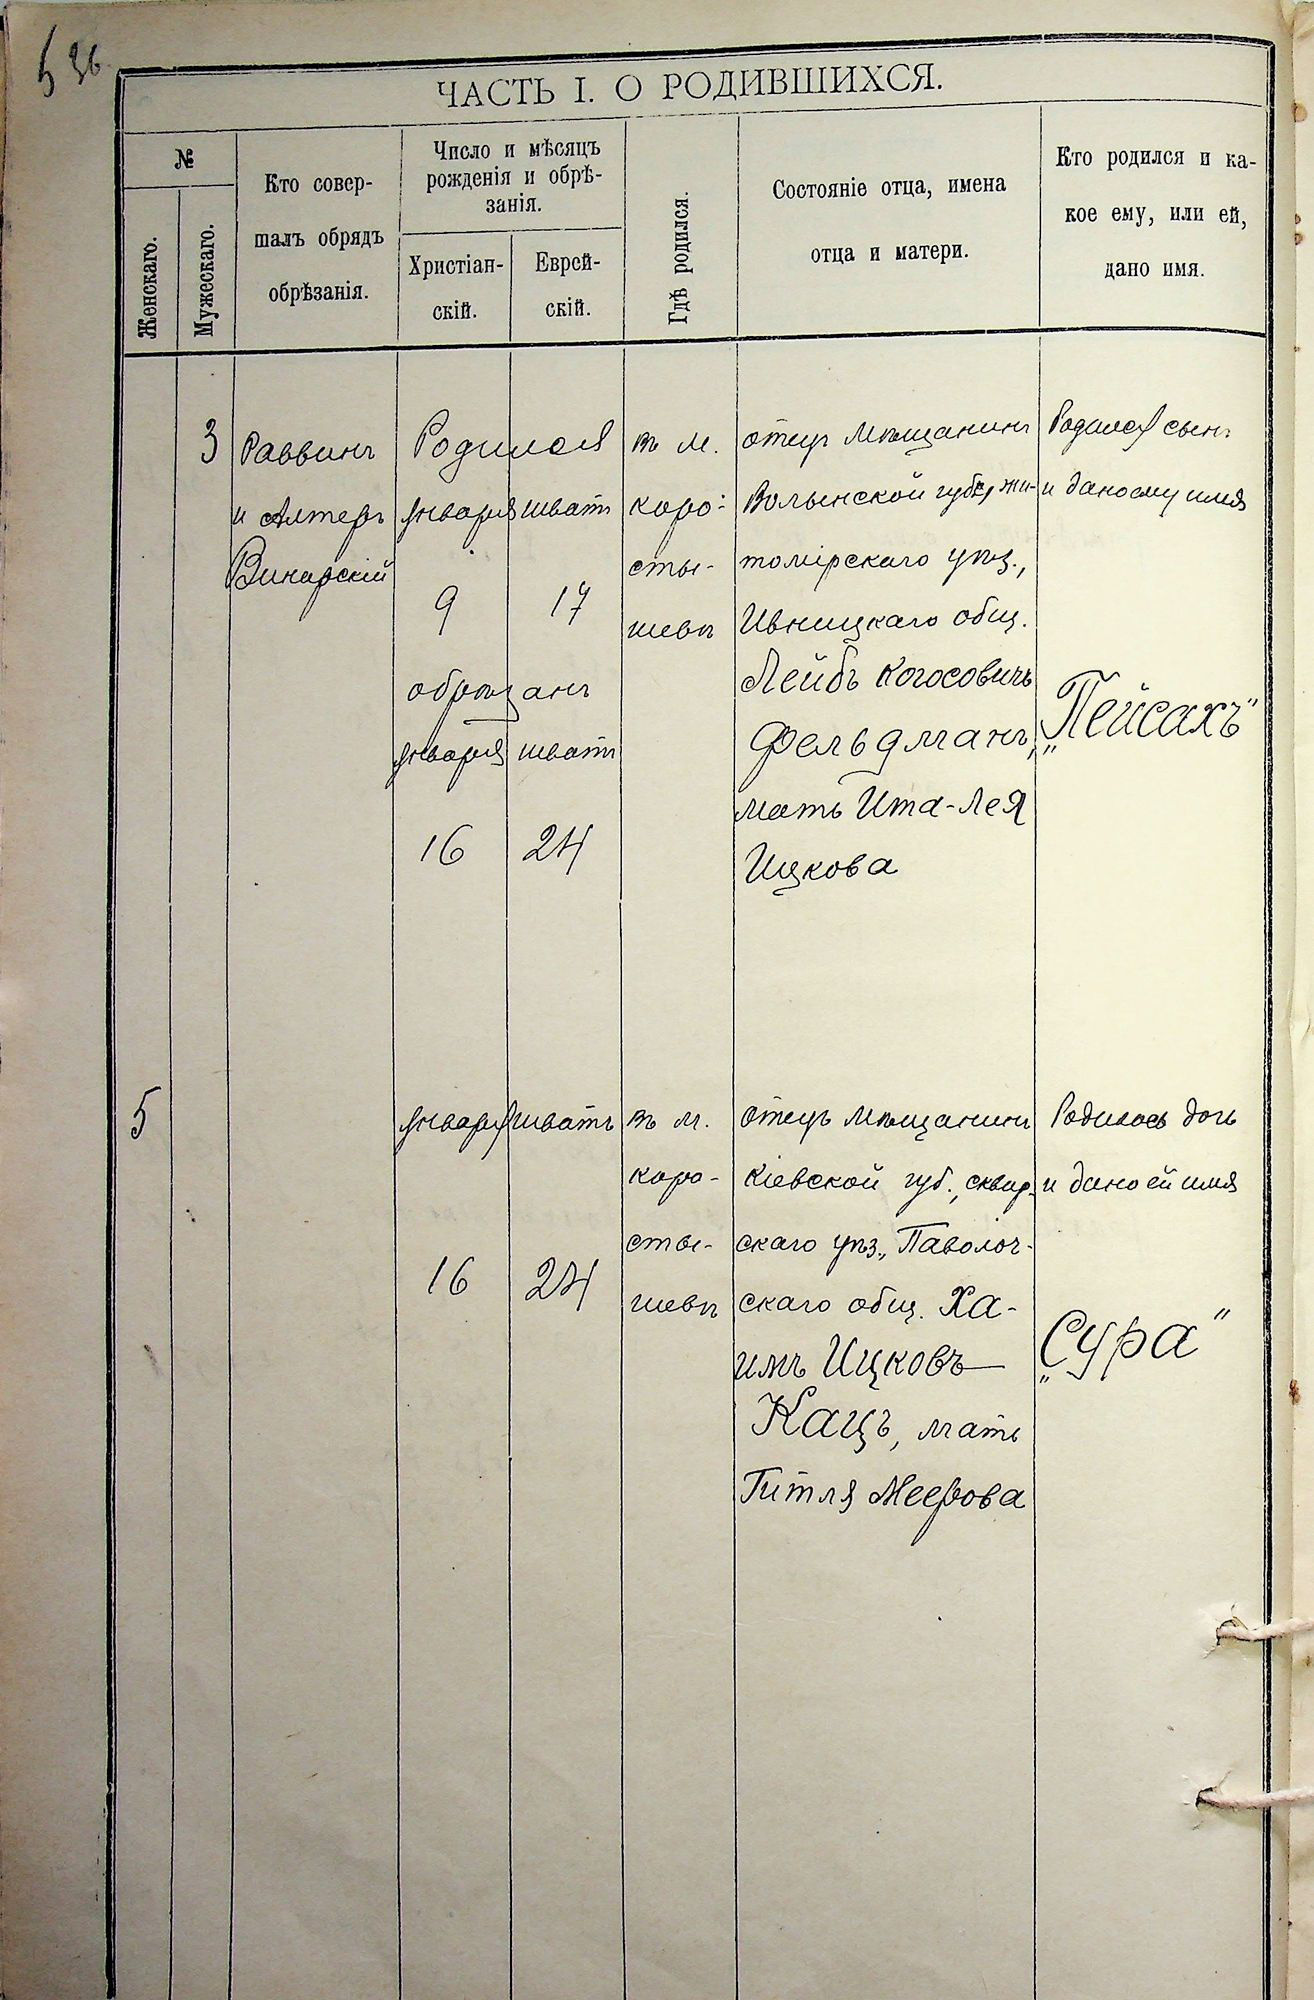 536
ЧАСТЬ I. О РОДИВШИХСЯ.
№
Женскаго.
Мужескаго.
Кто совер-
шалъ обрядъ
обрѣзанія.
Число и мѣсяцъ
рожденія и обрѣ-
занія.
Христіан-
скій.
Еврей-
скій.
Гдѣ родился.
Состояніе отца, имена
отца и матери.
Кто родился и ка-
кое ему, или ей,
дано имя.
3
Раввинъ
и Алтеръ
Винарскій
Родился
января шватъ
9 17
обрѣзанъ
января шватъ
16 24
въ м.
коро-
сты-
шевѣ
отецъ мѣщанинъ
Волынской губ., жи-
томірскаго уѣз.,
Ивницкаго общ.
Лейбъ Когосовичъ
Фельдманъ,
мать Ита-Лея
Ицкова
Родился сынъ
и дано ему имя
„Пейсахъ"
5
января шватъ
16 24
въ м.
коро-
сты-
шевѣ
отецъ мѣщанинъ
Кіевской губ., сквир-
скаго уѣз., Паволоч-
скаго общ. Ха-
имъ Ицковъ
Кацъ, мать
Гитля Меерова
Родилась дочь
и дано ей имя
„Сура"